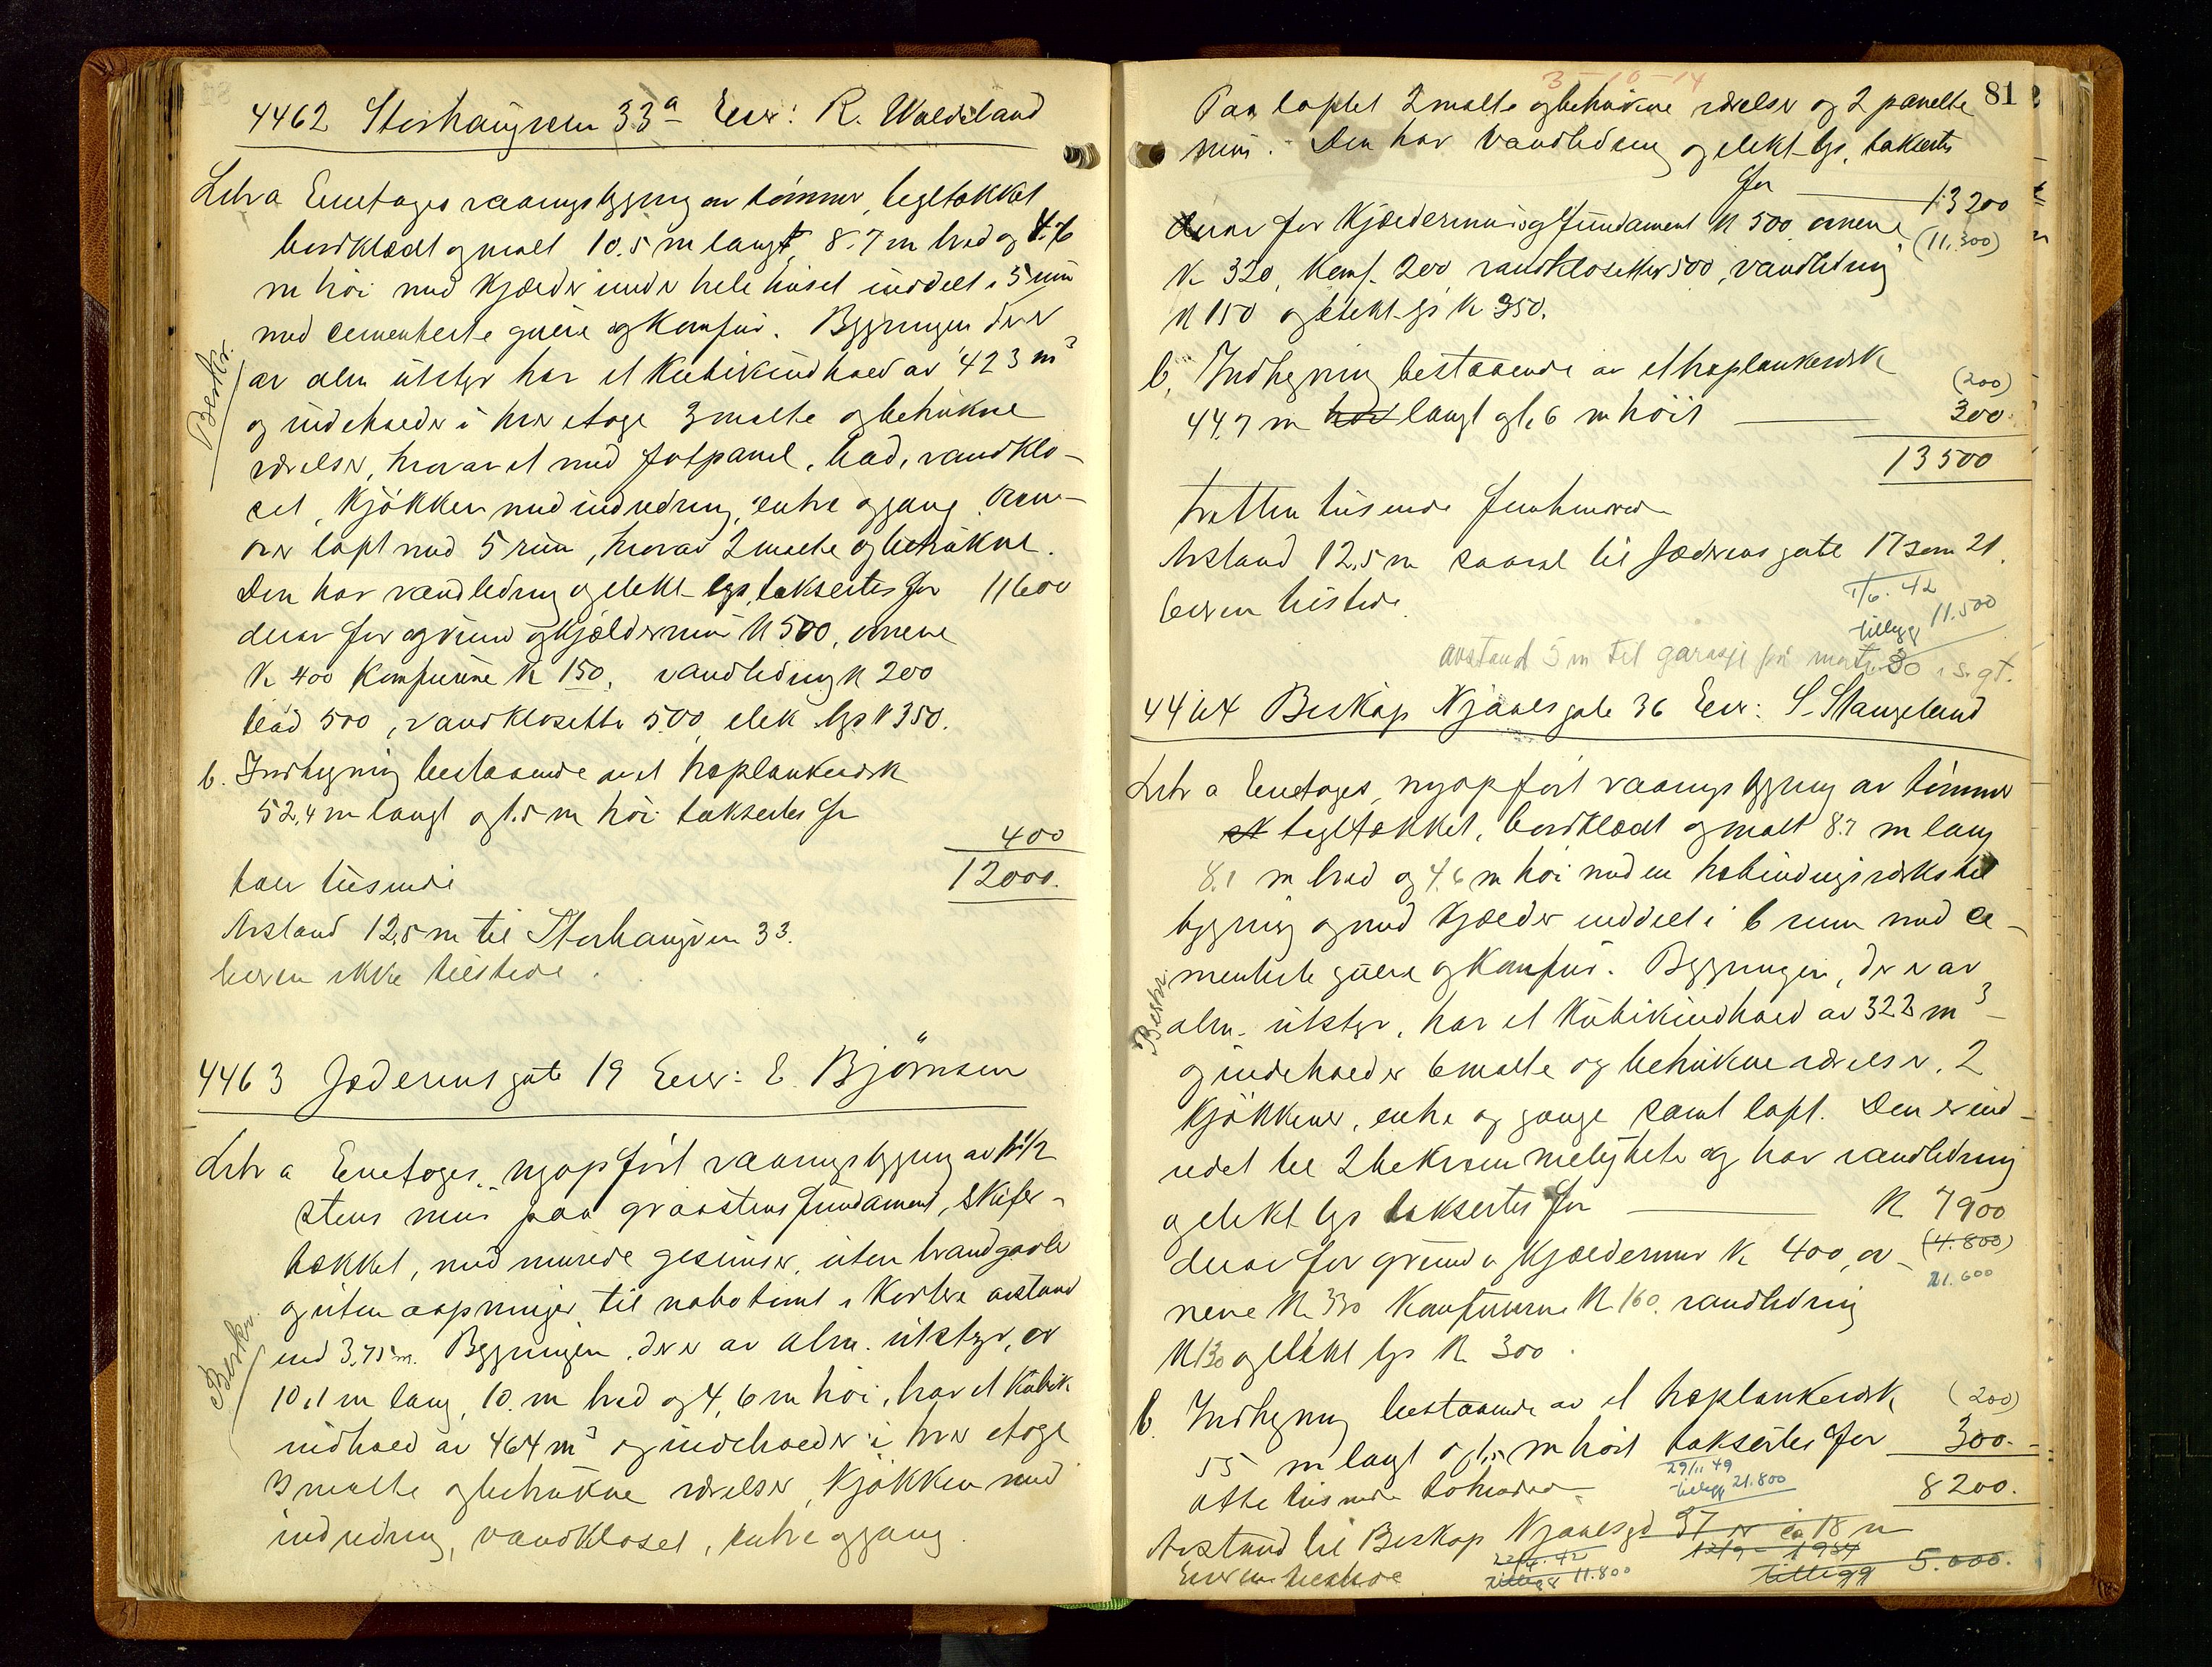 4462 Storhaugveien 33a Eier: R. Waldeland
Litr a Eenetages vaaningsbygning av tömmer, tegltækket
bordklædt og malt 10.5 m langt, 8.7 m bred og 4.6
m höi med kjælder under hele huset inddelt i 5 rum
med cementerte gulve og komfur. Bygningen der er
av alm utstyr har et kubikindhold av 423 m3
og indeholder i hver etage 3 malte og betrukne
værelser, hvorav et med fotpanel, bad, vandklo-
set, kjökken med indredning, entre og gang. Oven-
over loft med 5 rum, hvorav 2 malte og betrukne.
Den har vandledning og elekt-lys, taksertes for 11600
derav for grund og kjældermur K 500, ovnene
K 400 Komfurene K 150, vandledning K 200
bad 500, vandklosetter 500, elek lys K 350.
b. Indhegning bestaaende av et træplankeværk
52,4 m langt og 1.5 m höi taksertes for
400
tolv tusinde 12000.
Avstand 12,5 m til Storhaugveien 33.
Eieren ikke tilstede.
Beskr.
4463 Jæderensgate 19 Eier: E. Björnsen
Litr a Eenetages nyopfört vaaningsbygning av 1 1/2
stens mur paa graastensfundament, skifer-
tækket, med murede gesimser, uten brandgavle
og uten aapninger til nabotomt i kortere avstand
end 3,75 m. Bygningen, der er av alm. utstyr, er
10,1 m lang, 10. m bred og 4,6 m höi, har et kubik
indhold av 464 m3 og indeholder i hver etage
3 malte og betrukne værelser, kjökken med
indredning, vandkloset, entre og gang.
Beskr.
3-10-14
81
Paa loftet 2 malte og betrukne værelser og 2 panelte
rum. Den har vandledning og elekt-lys, taksertes
for 13200
(11,300)
derav for kjældermur og fundament K 500 ovnene
K 320, Komf. 200 vandklosetter 500, vandledning
K 150 og elekt-lys K 350.
b, Indhegning bestaaende av et træplankeværk
(200)
44,7 m höi langt og 1,6 m höit 300.
13500
tretten tusinde femhundrede
Avstand 12,5 m saavel til Jæderensgate 17 som 21.
Eieren tilstede.
1/6. 42
tillegg 11.500
avstand 5 m til garasje på matr. 30 i s. gt.
4464 Biskop Njaalsgate 36 Eier: S. Stangeland
Litr a Eenetages, nyopfört vaaningsbygning av tömmer
tegltækket, bordklædt og malt 8.7 m lang
8.1 m bred og 4.6 m höi med en træbindingsverks til
bygning og med kjælder inddelt i 6 rum med ce-
menterte gulve og komfur. Bygningen, der er av
alm. utstyr, har et kubikindhold av 322 m3
og indeholder 6 malte og betrukne værelser, 2
kjökkener, entre og gange samt loft. Den er ind-
redet til 2 bekvemmeligheter og har vandledning
og elekt lys taksertes for K 7900
derav for grund og kjældermur K 400, ov- (4.800)
21.600
nene K 330 Komfurerne K 160. vandledning
K 130 og elekt lys K 300.
b. Indhegning bestaaende av et træplankeværk (200)
55 m langt og 1,5 m höit taksertes for 300.-
29/11 49
tillegg 21.800
otte tusinde tohundrede 8200.
Avstand til Biskop Njaalsgd 37 er ca 18 m
22/4. 42
12/9 - 1934
Eieren tilstede tillegg 11.800 tillegg 5.000.
Beskr.